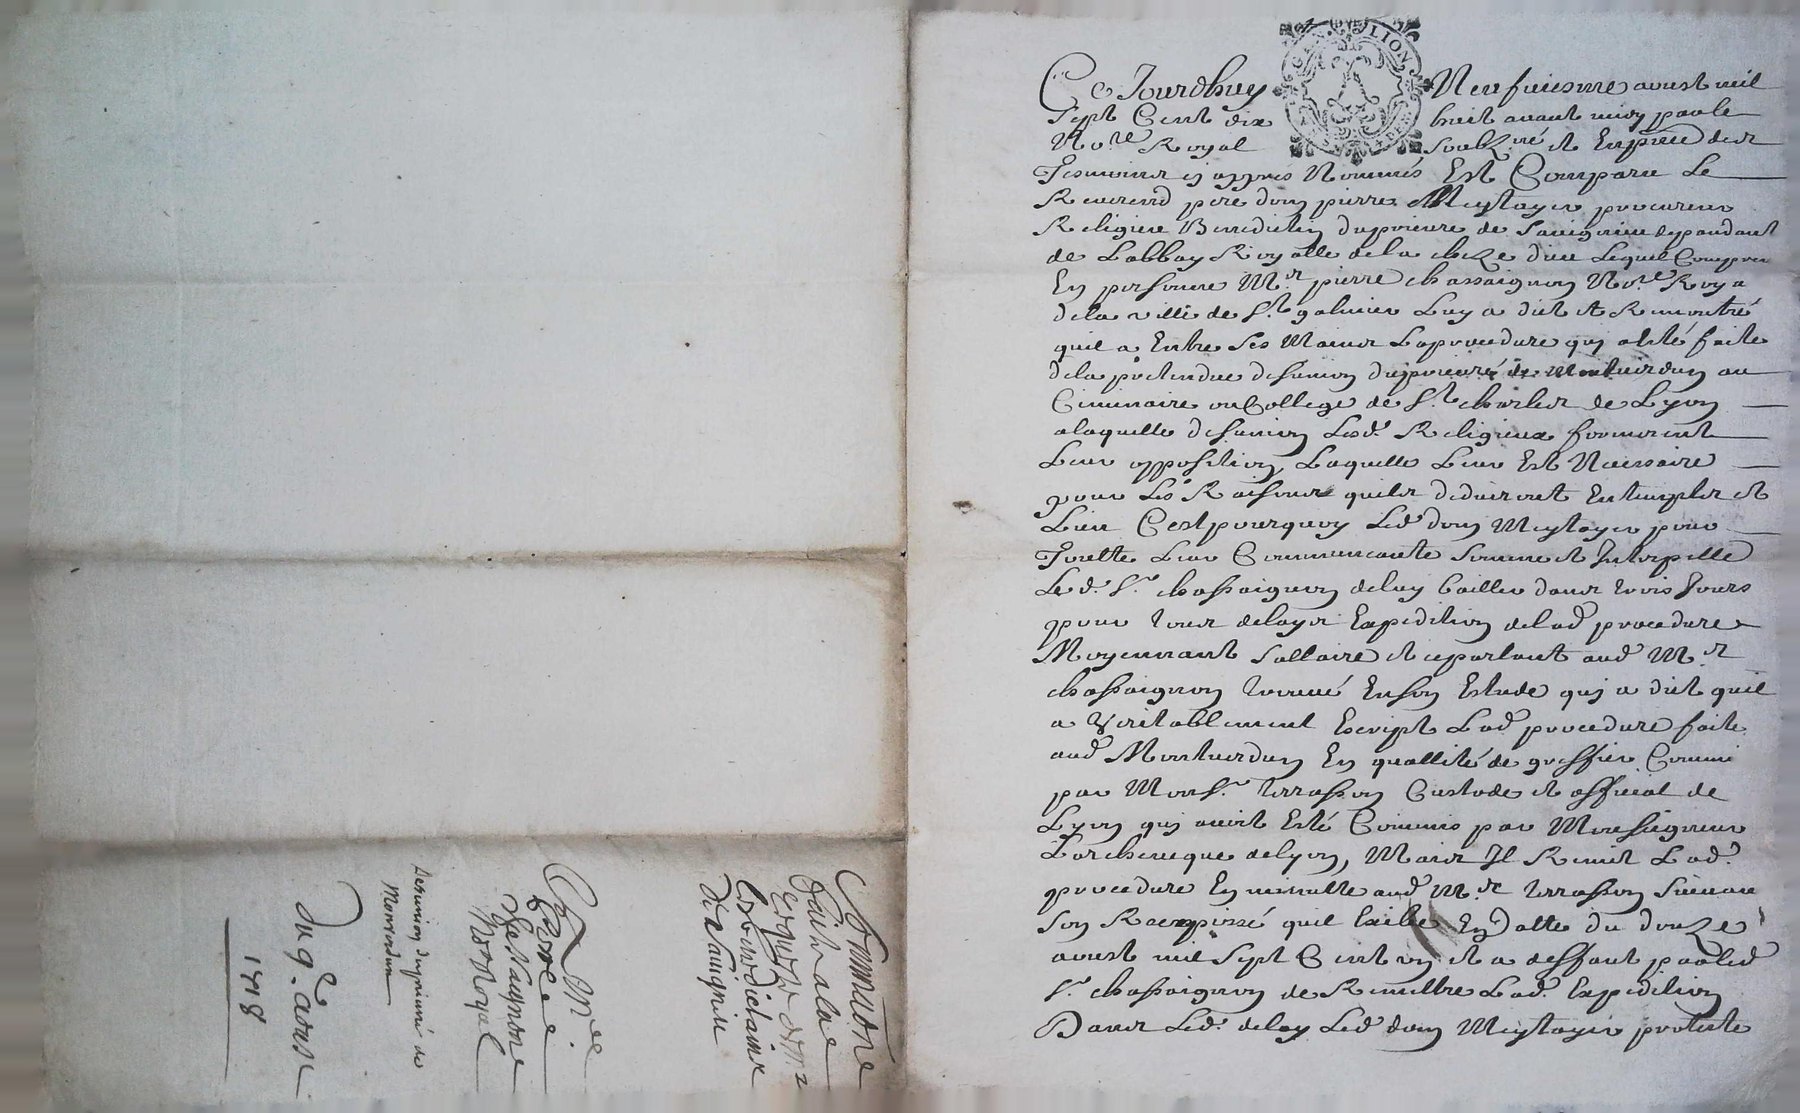 Ce Jourdhuy Neufuiesme aoust mil
sept Cent dix huit avant midy par le
No.re Royal soubz.né et En pñce des
Tesmoins cy appres Nommés Est Comparu Le
Reverend pere dom pierre Meytayer procureur
Religieux Benedictin du prieure de Savignieu depandant
de Labbay Royalle de la cheze dieu Lequel
En personne M.r pierre chassaignon No.re Roya
de la ville de S.t galmier Luy a dict et Remontré
quil a Entre ses Mains La procedure qui a Esté faite
de la pretendue desunion du prieuré de Montverdun au
Ceminaire ou College de S.t charles de Lyon
a laquelle desunion Lesd. Religieux formerent
Leur opposition, Laquelle Leur Est Necessaire
pour Les Raisons quils deduiront En temps et
Lieu Cest pourquoy Led. dom Meytayer pour
Toutte Leur Communeauté somme et Interpelle
Led. S.r chassaignon de luy bailler dans trois Jours
pour tous delays Expedition de lad. procedure
Moyennant sallaire et a parlant aud. M.r
chassaignon trouvé En son Estude qui a dit quil
a veritablement Escript Lad. procedure faite
aud. Montverdun En quallité de greffier Commi
par Mons.r terrasson Custode et official de
Lyon qui avoit Esté Commis par Monseigneur
Larcheveque de lyon, Mais Il Remit Lad.
procedure En minutte aud. M.r terrasson suivant
son Recepissé quil Exibe En datte du douze
aoust mil sept Cent et a deffaut par led.
S.r chassaignon de Remettre Lad. Expedition
Dans Led. delay Led. dom Meytayer proteste
Sommaõne
faict a la
Req.te de m.rs
Les benedictains
de Savignieu
Con M.re
pierre
Chassaignon
No.re Royal
Desunion du prieuré de
Monverdun
Du 9.e aoust
1718